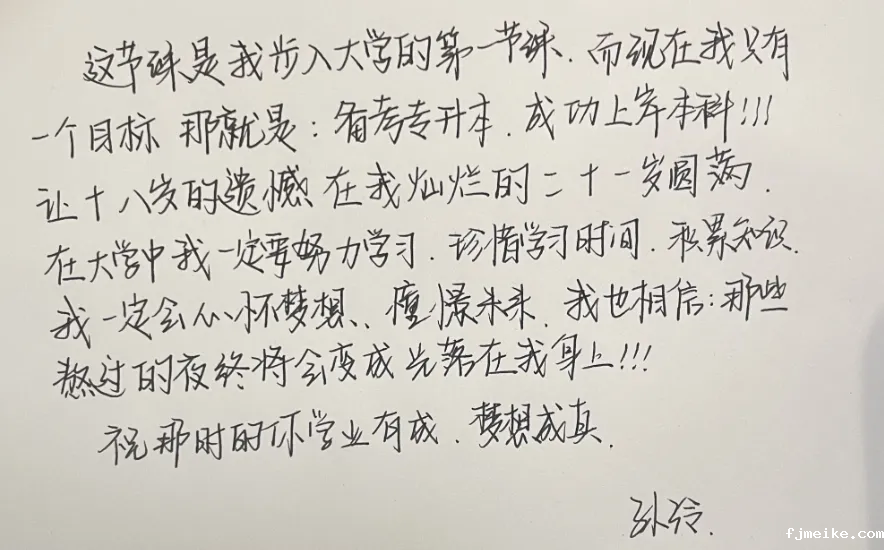 这节课是我步入大学的第一节课.而现在我只有
一个目标 那就是:备考专升本.成功上岸本科!!!
让十八岁的遗憾在我灿烂的二十一岁圆满.
在大学中我一定要努力学习.珍惜学习时间.积累知识.
我一定会心怀梦想、憧憬未来.我也相信:那些
熬过的夜终将会变成光落在我身上!!!
祝那时的你学业有成.梦想成真.
孙玲.
fjmeike.com